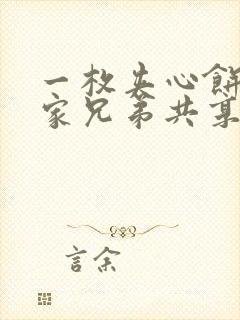 一枚夾心餅
家兄弟共
言余